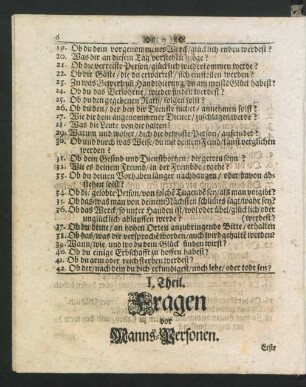 6
19. Ob du dein vorgenommenes Werck/glücklich enden werdest?
20. Was dir an diesem Tag vorstehen möge?
21. Ob die verreiste Person/glücklich wiederkommen werde?
22. Ob die Gäste/die du erwartest/sich einstellen werden?
23. Zu was Gewerb und Handthierung/du am meisten Glück habest?
24. Ob du das Verlohrne/wieder finden werdest?
25. Ob du den gegebenen Rath/folgen sollst?
26. Ob du den/der bey dir Dienste suchet/annehmen sollst?
27. Wie dir dein angenommener Diener/zuschlagen werde?
28. Was die Leute von dir halten?
29. Warum und woher/dich die bewuste Person/anfeindet?
30. Ob und durch was Weise/du mit deinem Feind/kanst verglichen
werden?
31. Ob dein Gesind und Dienstbothen/dir getreu seyn?
32. Wie es deinem Freund/in der Frembde/ergehe?
33. Ob du deinem Vorhaben länger nachhangen/oder davon ab-
stehen sollst?
34. Ob die gelobte Person/von solcher Tugend sey/als man vorgibt?
35. Ob das/was man von deinem Nächsten schlimes sagt/wahr sey?
36. Ob das Werck/so unter Handen ist/wol/oder übel/glücklich oder
unglücklich ablauffen werde?
37. Ob du deine/an hohen Orten anzubringende Bitte/erhalten
werdest?
38. Ob das/was dir versprochen worden/auch wird gehalten werden?
39. Wann/wie/und wo du dein Glück finden wirst?
40. Ob du einige Erbschafft zu hoffen habest?
41. Ob du arm oder reich sterben werdest?
42. Ob der/nach dem du dich erkundigest/noch lebe/oder todt sey?
I. Theil.
Fragen
vor
Manns-Personen.
Erste